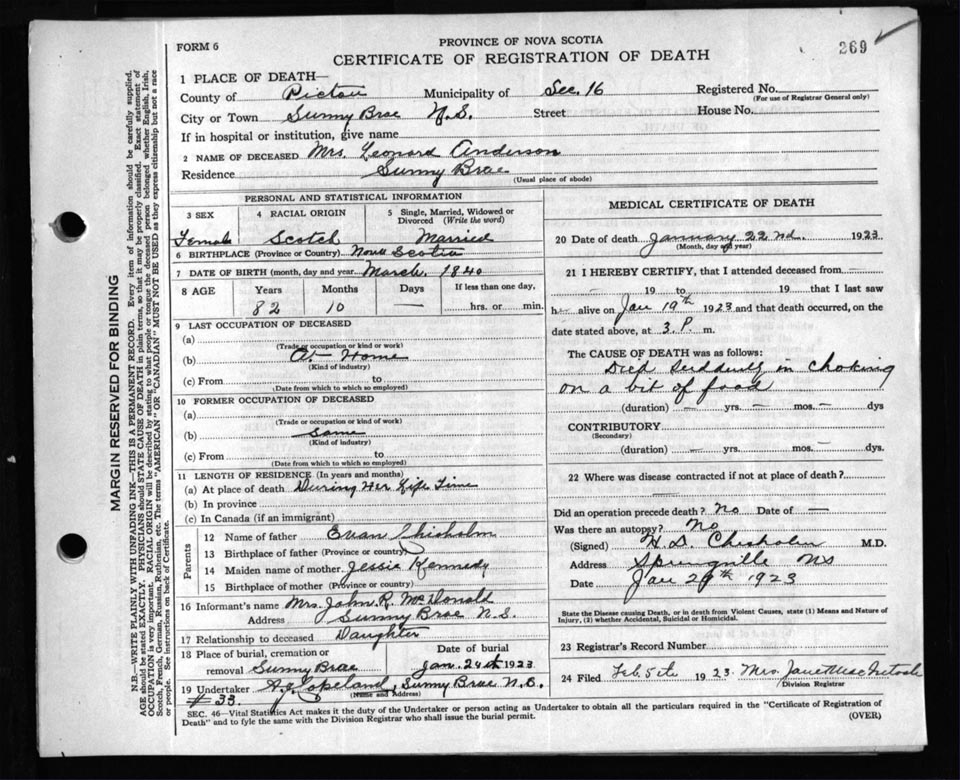 FORM 6
PROVINCE OF NOVA SCOTIA
269
CERTIFICATE OF REGISTRATION OF DEATH
1 PLACE OF DEATH—
County of Pictou Municipality of Sec. 16 Registered No.
(For use of Registrar General only)
City or Town Sunny Brae N.S. Street House No.
If in hospital or institution, give name
2 NAME OF DECEASED Mrs. Leonard Anderson
Residence Sunny Brae
(Usual place of abode)
PERSONAL AND STATISTICAL INFORMATION
3 SEX 4 RACIAL ORIGIN 5 Single, Married, Widowed or
Divorced (Write the word)
Female Scotch Married
6 BIRTHPLACE (Province or Country) Nova Scotia
7 DATE OF BIRTH (month, day and year March. 1840
8 AGE Years Months Days If less than one day,
82 10 — hrs. or min.
9 LAST OCCUPATION OF DECEASED
(a)
(Trade or occupation or kind or work)
(b) At Home
(Kind of industry)
(c) From to
(Date from which to which so employed)
10 FORMER OCCUPATION OF DECEASED
(a)
(Trade or occupation or kind of work)
(b) same
(Kind of industry)
(c) From to
(Date from which to which so employed)
11 LENGTH OF RESIDENCE (In years and months)
(a) At place of death During Her Life Time
(b) In province
(c) In Canada (if an immigrant)
Parents
12 Name of father Evan Chisholm
13 Birthplace of father (Province or country)
14 Maiden name of mother Jessie Kennedy
15 Birthplace of mother (Province or country)
16 Informant's name Mrs. John R. McDonald
Address Sunny Brae N.S.
17 Relationship to deceased Daughter
18 Place of burial, cremation or Date of burial
removal Sunny Brae Jan. 24th 1923
19 Undertaker A. J. Copeland, Sunny Brae N.S.
(Name and Address)
# 33.
MEDICAL CERTIFICATE OF DEATH
20 Date of death January 22nd. 1923
(Month, day and year)
21 I HEREBY CERTIFY, that I attended deceased from —
— 19 to — 19 that I last saw
h— alive on Jan 19th 1923 and that death occurred, on the
date stated above, at 3. P. m.
The CAUSE OF DEATH was as follows:
Died suddenly in choking
on a bit of food
(duration) — yrs. — mos. — dys
CONTRIBUTORY
(Secondary)
(duration) — yrs. — mos. — dys.
22 Where was disease contracted if not at place of death?
—
Did an operation precede death? No Date of —
Was there an autopsy? No
(Signed) H. D. Chisholm M.D.
Address Springville NS
Date Jan 29th 1923
State the Disease causing Death, or in death from Violent Causes, state (1) Means and Nature of
Injury, (2) whether Accidental, Suicidal or Homicidal.
23 Registrar's Record Number
24 Filed Feb. 5th 1923. Mrs. Jane MacIntosh
Division Registrar
SEC. 46—Vital Statistics Act makes it the duty of the Undertaker or person acting as Undertaker to obtain all the particulars required in the "Certificate of Registration of
Death" and to fyle the same with the Division Registrar who shall issue the burial permit.
(OVER)
MARGIN RESERVED FOR BINDING
N.B.—WRITE PLAINLY WITH UNFADING INK.—THIS IS A PERMANENT RECORD. Every item of information should be carefully supplied.
AGE should be stated EXACTLY. PHYSICIANS should STATE CAUSE OF DEATH in plain terms, so that it may be properly classified. Exact statement of
OCCUPATION is very important. RACIAL ORIGIN will be described by stating to what people or tongue the deceased person belonged whether English, Irish,
Scotch, French, German, Russian, Ruthenian, etc. The terms "AMERICAN" OR "CANADIAN" MUST NOT BE USED as they express citizenship but not a race
or people. See instructions on back of Certificate.